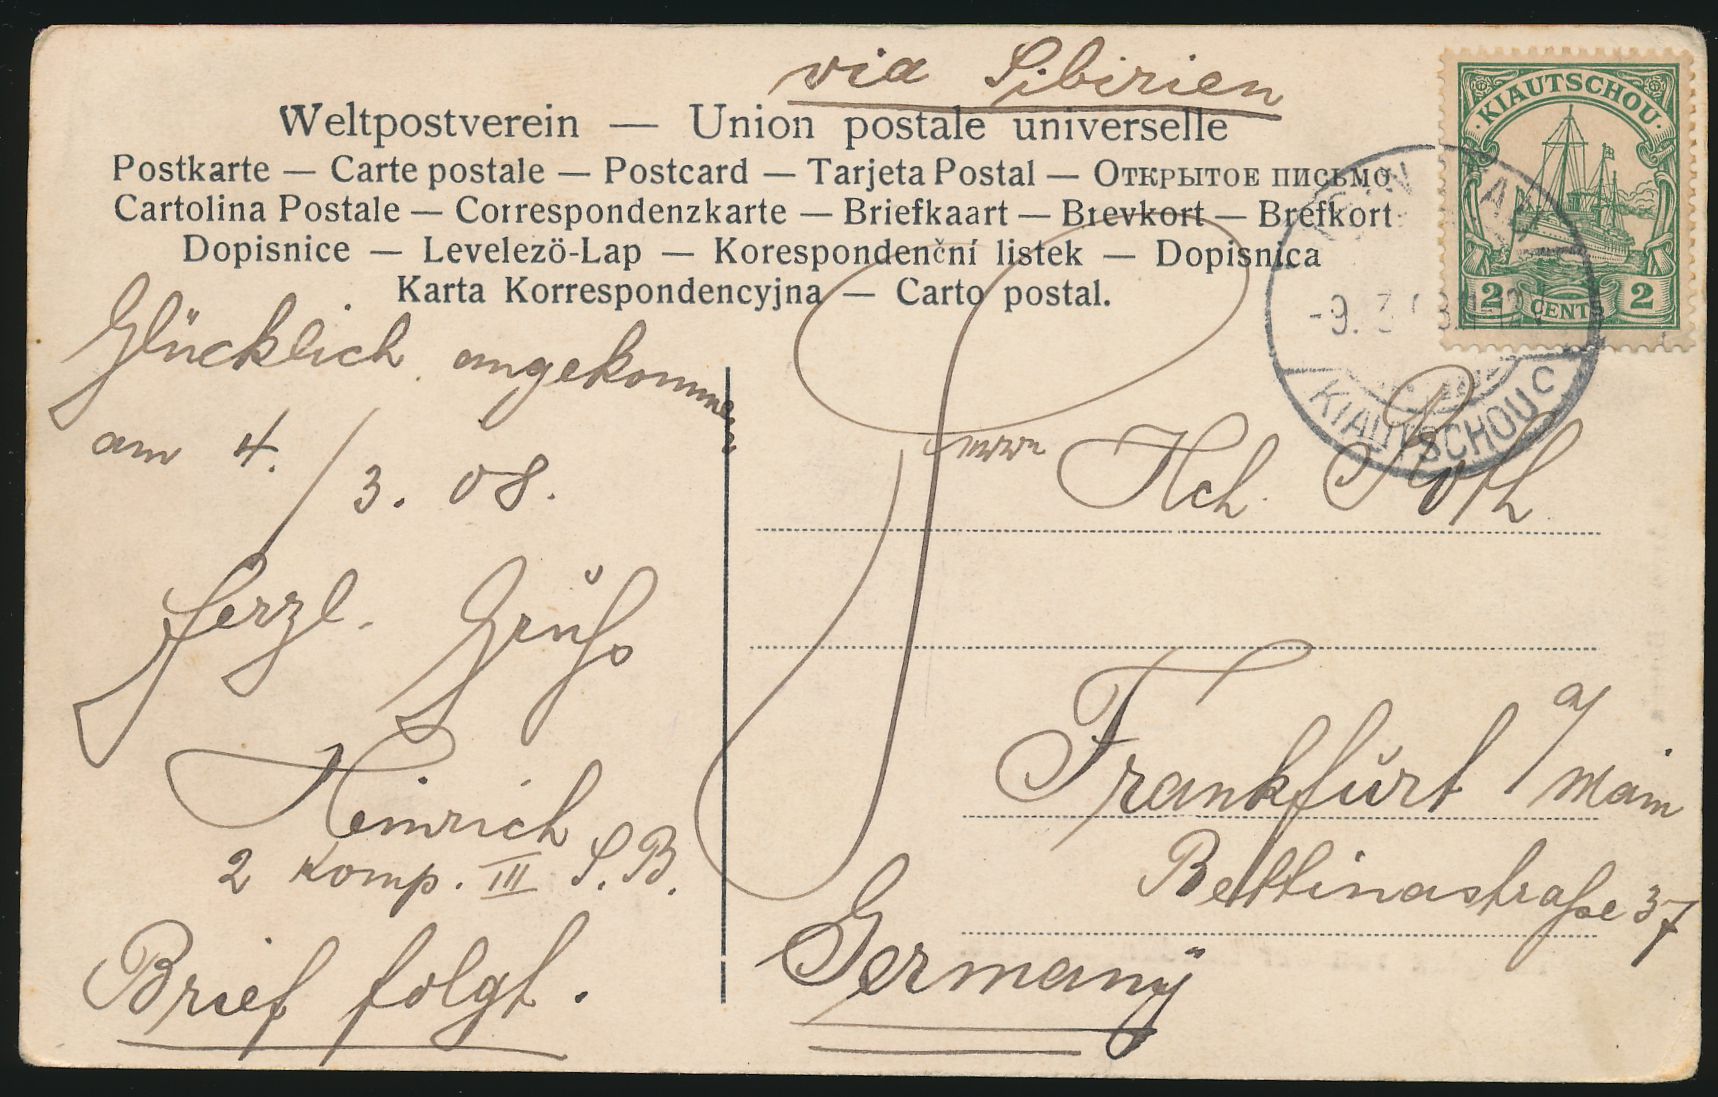 via Sibirien
Weltpostverein — Union postale universelle
Postkarte — Carte postale — Postcard — Tarjeta Postal — Открытое письмо
Cartolina Postale — Correspondenzkarte — Briefkaart — Brevkort — Brefkort
Dopisnice — Levelezö-Lap — Korespondenční listek — Dopisnica
Karta Korrespondencyjna — Carto postal.
KIAUTSCHOU
2 CENTS 2
-9. 3
KIAUTSCHOU C
Glücklich angekommen
am 4./3. 08.
herzl. Gruß
Heinrich
2 Komp. III S.B.
Brief folgt.
Hch. Roth
Frankfurt a/Main
Bettinastraße 37
Germany